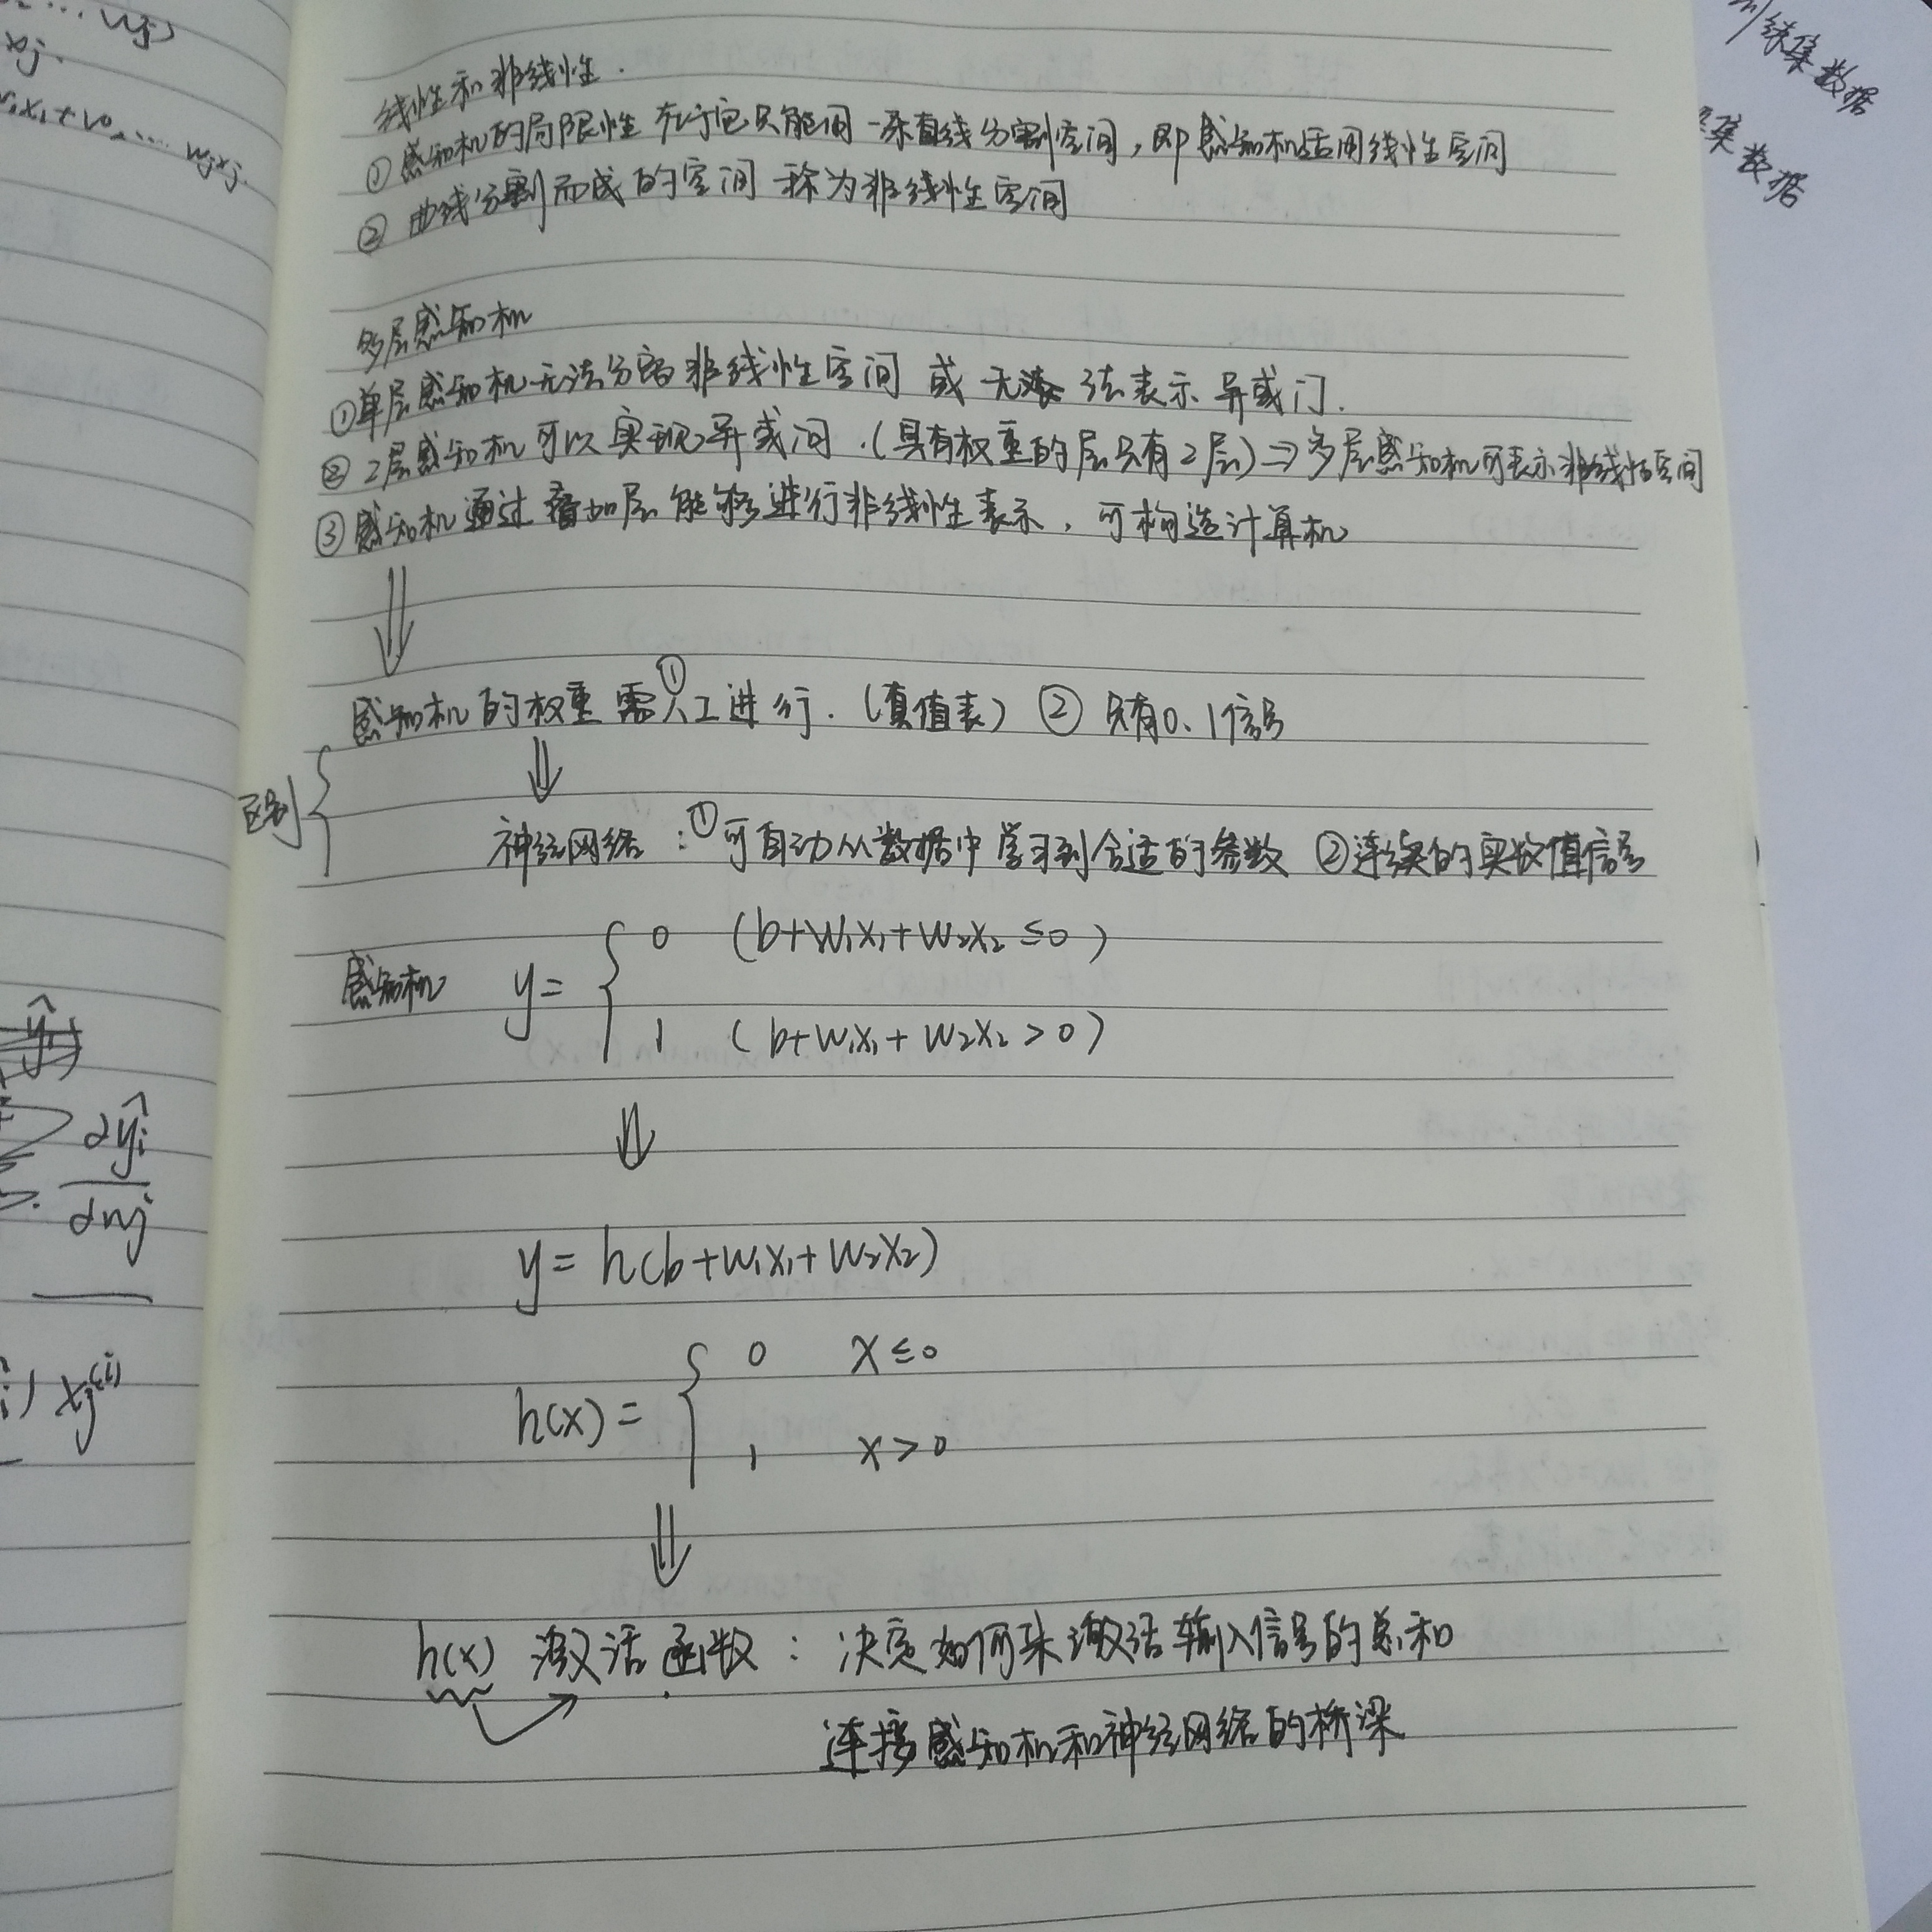 线性和非线性.
① 感知机的局限性 在于它只能用一条直线分割空间，即感知机适用线性空间
② 曲线分割而成的空间 称为非线性空间
多层感知机
①单层感知机无法分离 非线性空间 或 无法表示 异或门.
② 2层感知机可以实现异或门.(具有权重的层只有2层)⇒多层感知机可表示非线性空间
③感知机通过叠加层能够进行非线性表示，可构造计算机
⇓
感知机的权重需①人工进行.(真值表) ② 只有0、1信号
⇓
区别
神经网络：①可自动从数据中学习到合适的参数 ②连续的实数值信号
感知机 y = { 0 (b+w₁x₁+w₂x₂ ≤0)
1 (b+w₁x₁+w₂x₂ > 0)
⇓
y = h(b+w₁x₁+w₂x₂)
h(x) = { 0 x ≤ 0
1 x > 0
⇓
h(x) 激活函数：决定如何来激活输入信号的总和
连接感知机和神经网络的桥梁
训练集数据
集数据
∂ŷi
∂wj
xj⁽ⁱ⁾